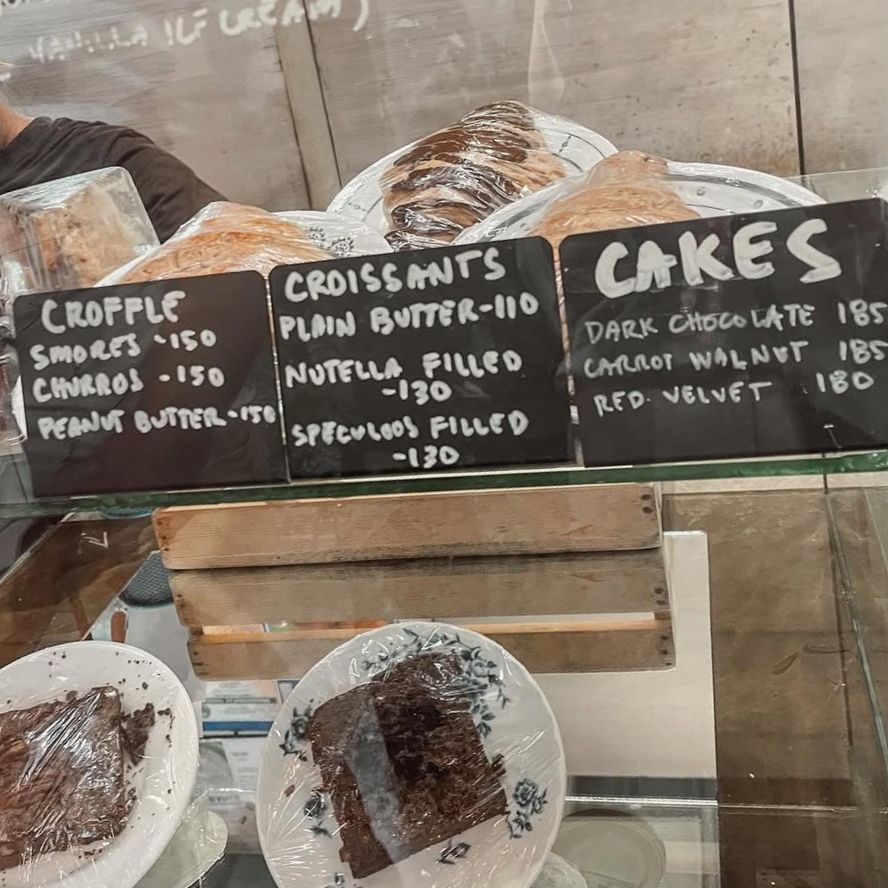 VANILLA ICE CREAM)
CROFFLE
SMORES -150
CHURROS -150
PEANUT BUTTER -150
CROISSANTS
PLAIN BUTTER -110
NUTELLA FILLED
-130
SPECULOOS FILLED
-130
CAKES
DARK CHOCOLATE 185
CARROT WALNUT 185
RED VELVET 180